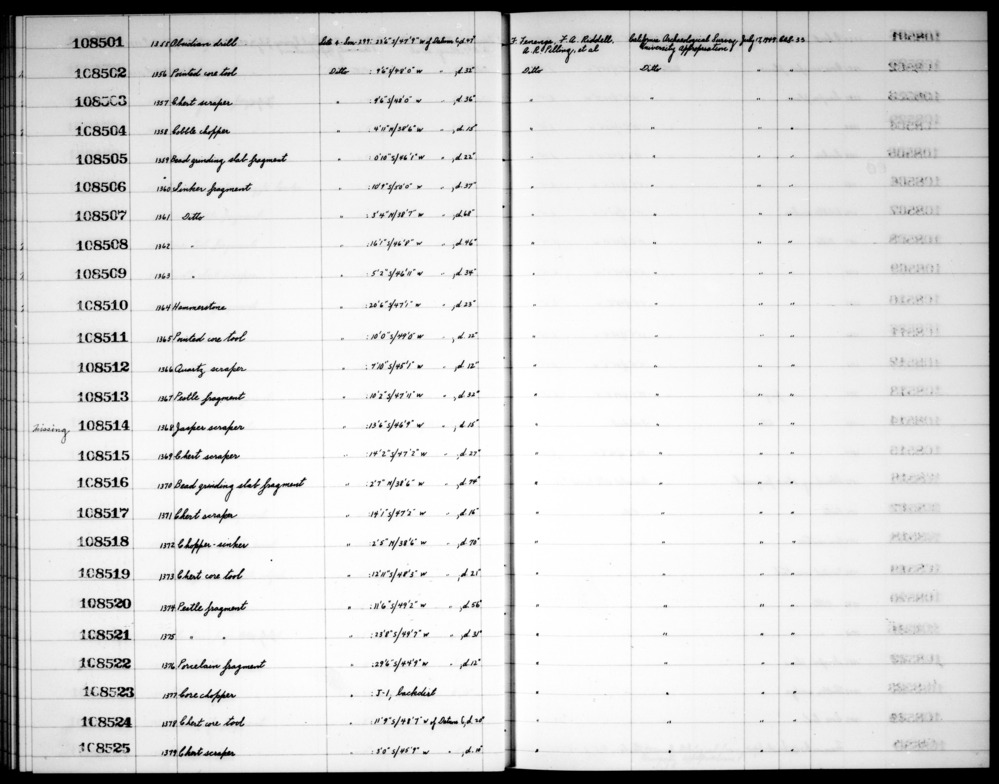 108501 1355 Obsidian drill : 23'6" S/47'9" W of Datum C, d. 45" F. Fenenga, F. A. Riddell, A. R. Pilling, et al California Archaeological Survey, University appropriation July 17, 1949
108502 1356 Pointed core tool Ditto : 4'6" S/48'0" W " , d. 35" Ditto Ditto " "
108503 1357 Chert scraper " : 9'6" S/48'0" W " , d. 36" " " " "
108504 1358 Cobble chopper " : 4'11" N/38'6" W " , d. 15" " " " "
108505 1359 Bead grinding slab fragment " : 0'10" S/46'1" W " , d. 22" " " " "
108506 1360 Sinker fragment " : 10'9" S/50'0" W " , d. 37" " " " "
108507 1361 Ditto " : 3'4" N/38'7" W " , d. 68" " " " "
108508 1362 " " : 16'1" S/46'8" W " , d. 46" " " " "
108509 1363 " " : 5'2" S/46'11" W " , d. 34" " " " "
108510 1364 Hammerstone " : 20'6" S/47'1" W " , d. 23" " " " "
108511 1365 Pointed core tool " : 10'0" S/49'0" W " , d. " " " "
108512 1366 Quartz scraper " : 7'10" S/45'1" W " , d. 12" " " " "
108513 1367 Pestle fragment " : 10'2" S/47'11" W " , d. 32" " " " "
Missing 108514 1368 Jasper scraper " : 13'6" S/46'9" W " , d. 15" " " " "
108515 1369 Chert scraper " : 14'2" S/47'2" W " , d. 27" " " " "
108516 1370 Bead grinding slab fragment " : 2'7" N/38'6" W " , d. 74" " " " "
108517 1371 Chert scraper " : 14'1" S/47'2" W " , d. 16" " " " "
108518 1372 Chopper-sinker " : 2'5" N/38'6" W " , d. 70" " " " "
108519 1373 Chert core tool " : 12'11" S/48'3" W " , d. 21" " " " "
108520 1374 Pestle fragment " : 11'6" S/49'2" W " , d. 56" " " " "
108521 1375 " " " : 23'8" S/49'7" W " , d. 31" " " " "
108522 1376 Porcelain fragment " : 29'6" S/44'9" W " , d. 12" " " " "
108523 1377 Core chopper " : J-1, backdirt " " " "
108524 1378 Chert core tool " : 11'9" S/48'7" W of Datum C, d. 20" " " " "
108525 1379 Chert scraper " : 5'0" S/45'9" W " , d. " " " "